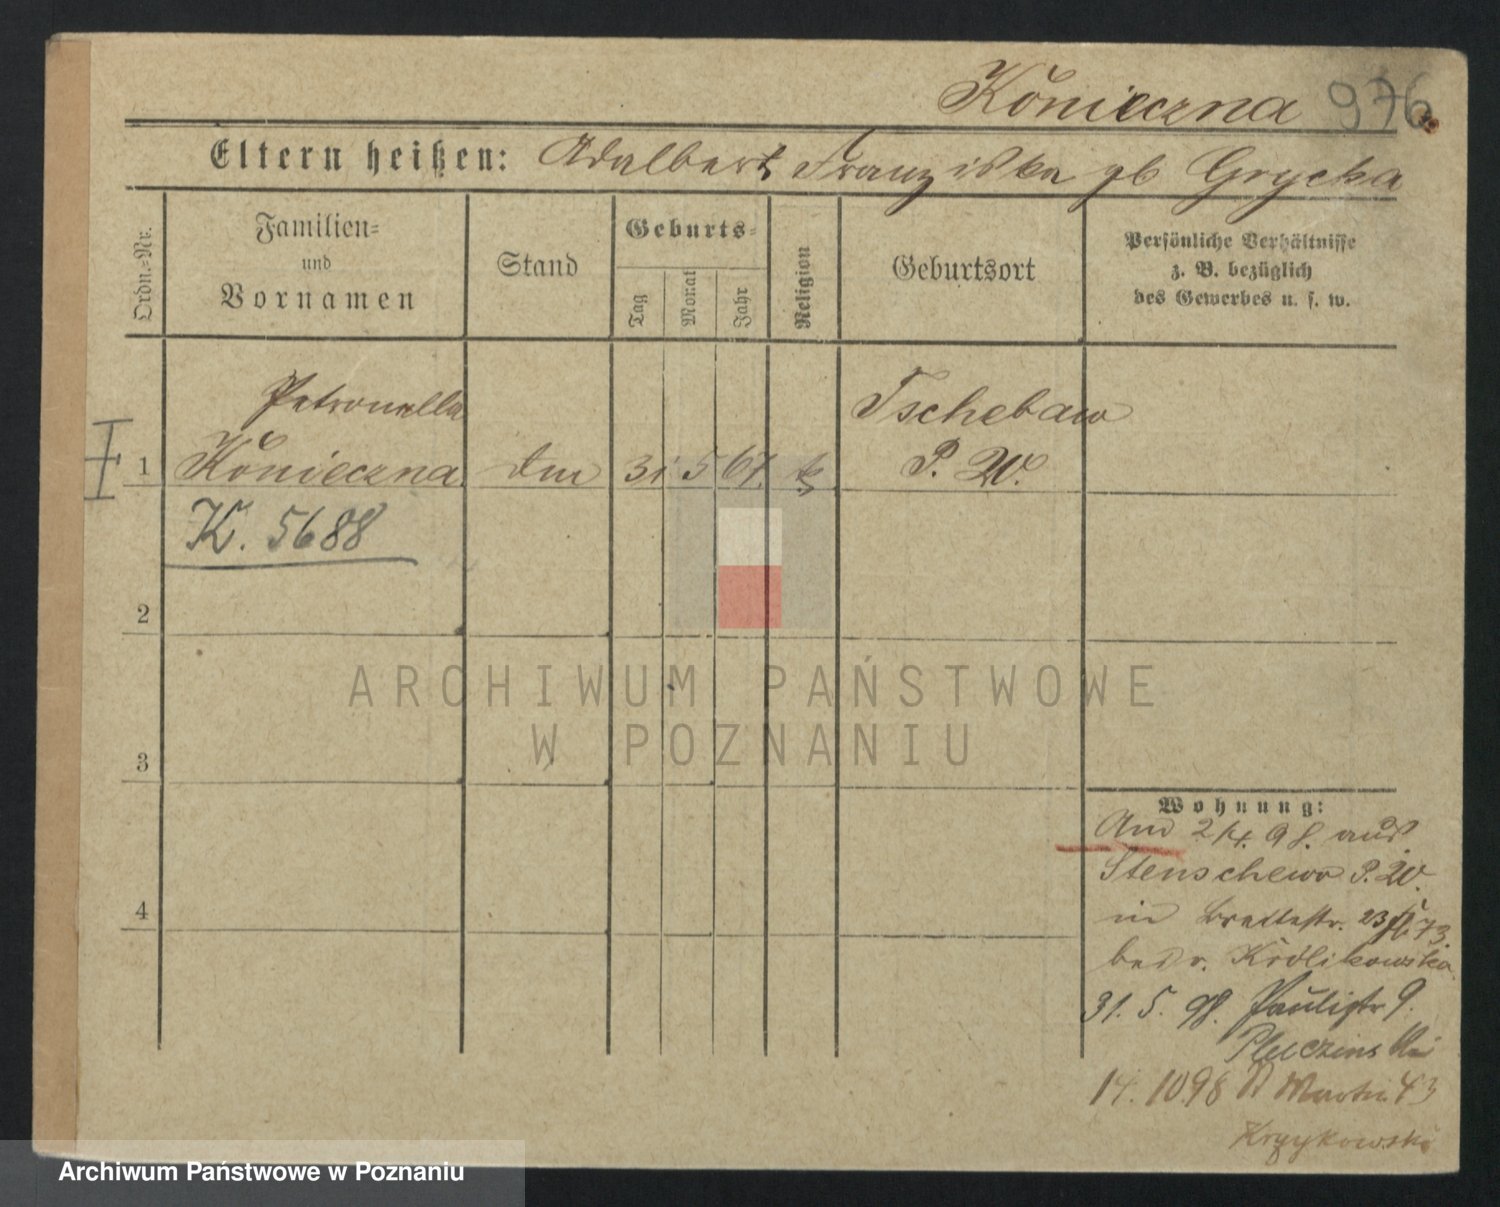 Konieczna 976
Eltern heißen: Adalbert Franziska gb Grycka
Ordn.-Nr.
Familien-
und
Vornamen
Stand
Geburts-
Tag
Monat
Jahr
Religion
Geburtsort
Persönliche Verhältnisse
z. B. bezüglich
des Gewerbes u. s. w.
Petronella
1 Konieczna 31 5 67. k
Tschebaw
P. W.
I
K. 5688
2
3
4
ARCHIWUM PAŃSTWOWE
W POZNANIU
Wohnung:
2/4. 98. aus
Stenschewo P. W.
in Breitestr. 23
bei v. Królikowska
31. 5. 98. Paulistr 9.
14. 10 98 St Martin 43
Krzykowski
Archiwum Państwowe w Poznaniu